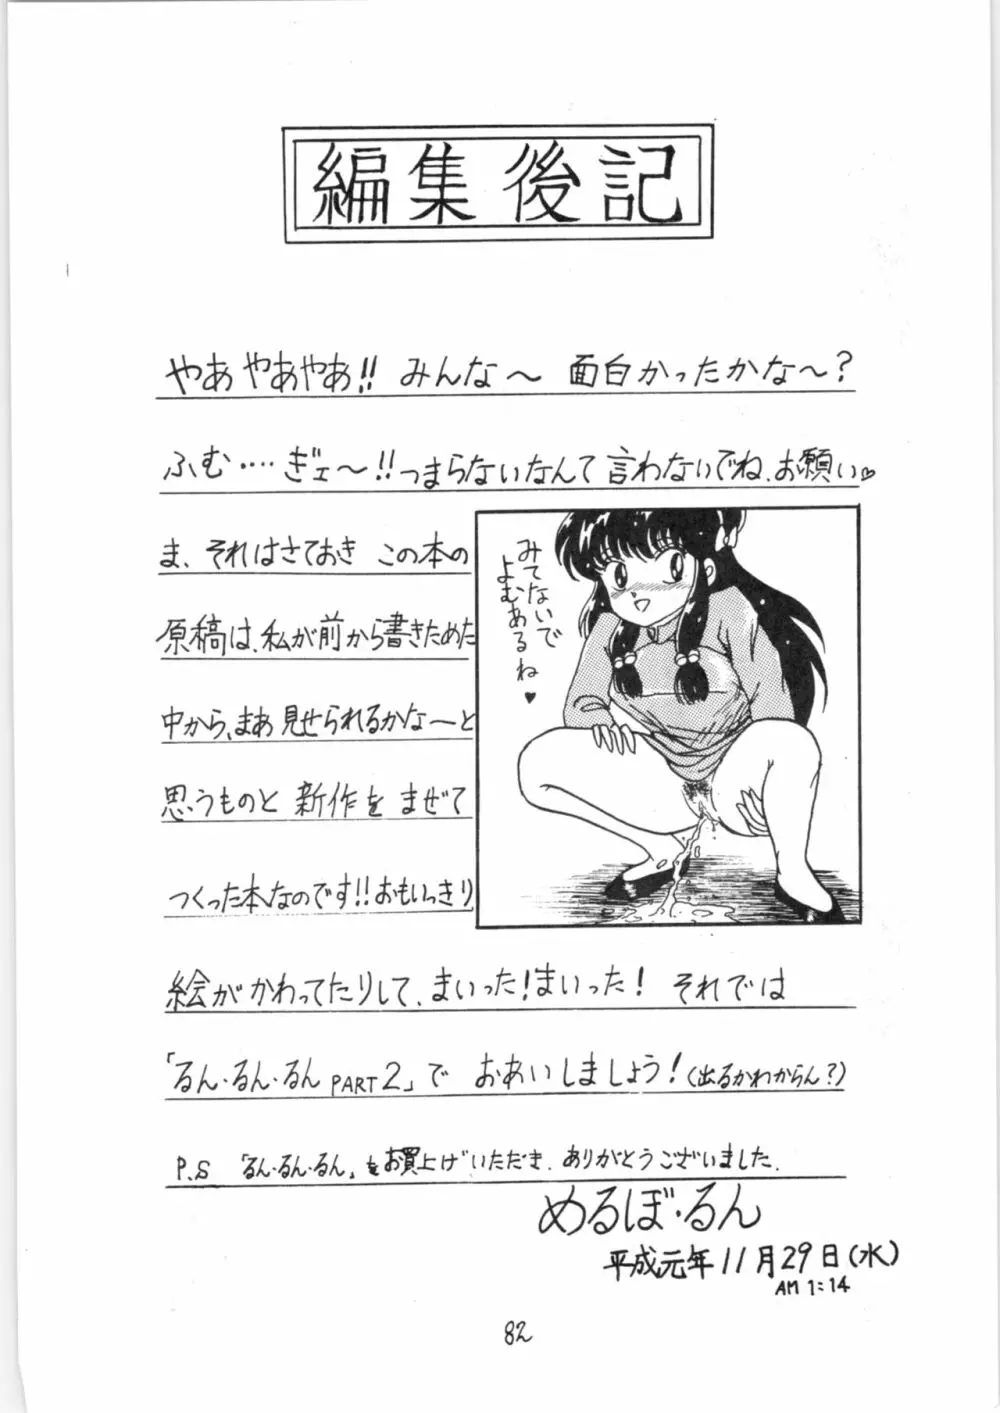 編集後記
やあ やあやあ!! みんな〜 面白かったかな〜?
ふむ‥‥ぎェ〜!!つまらないなんて言わないでね、お願い♡
ま、それはさておき この本の
原稿は、私が前から書きためた
中から、まあ見せられるかな〜と
思うものと 新作を まぜて
つくった本なのです!!おもいっきり
みてないで
よむあるね♥
絵がかわってたりして、まいった!まいった! それでは
「るん・るん・るん PART2」で おあいしましょう!(出るかわからん?)
P.S 「るん・るん・るん」をお買上げいただき、ありがとうございました.
めるぼ・るん
平成元年11月29日(水)
AM 1:14
82